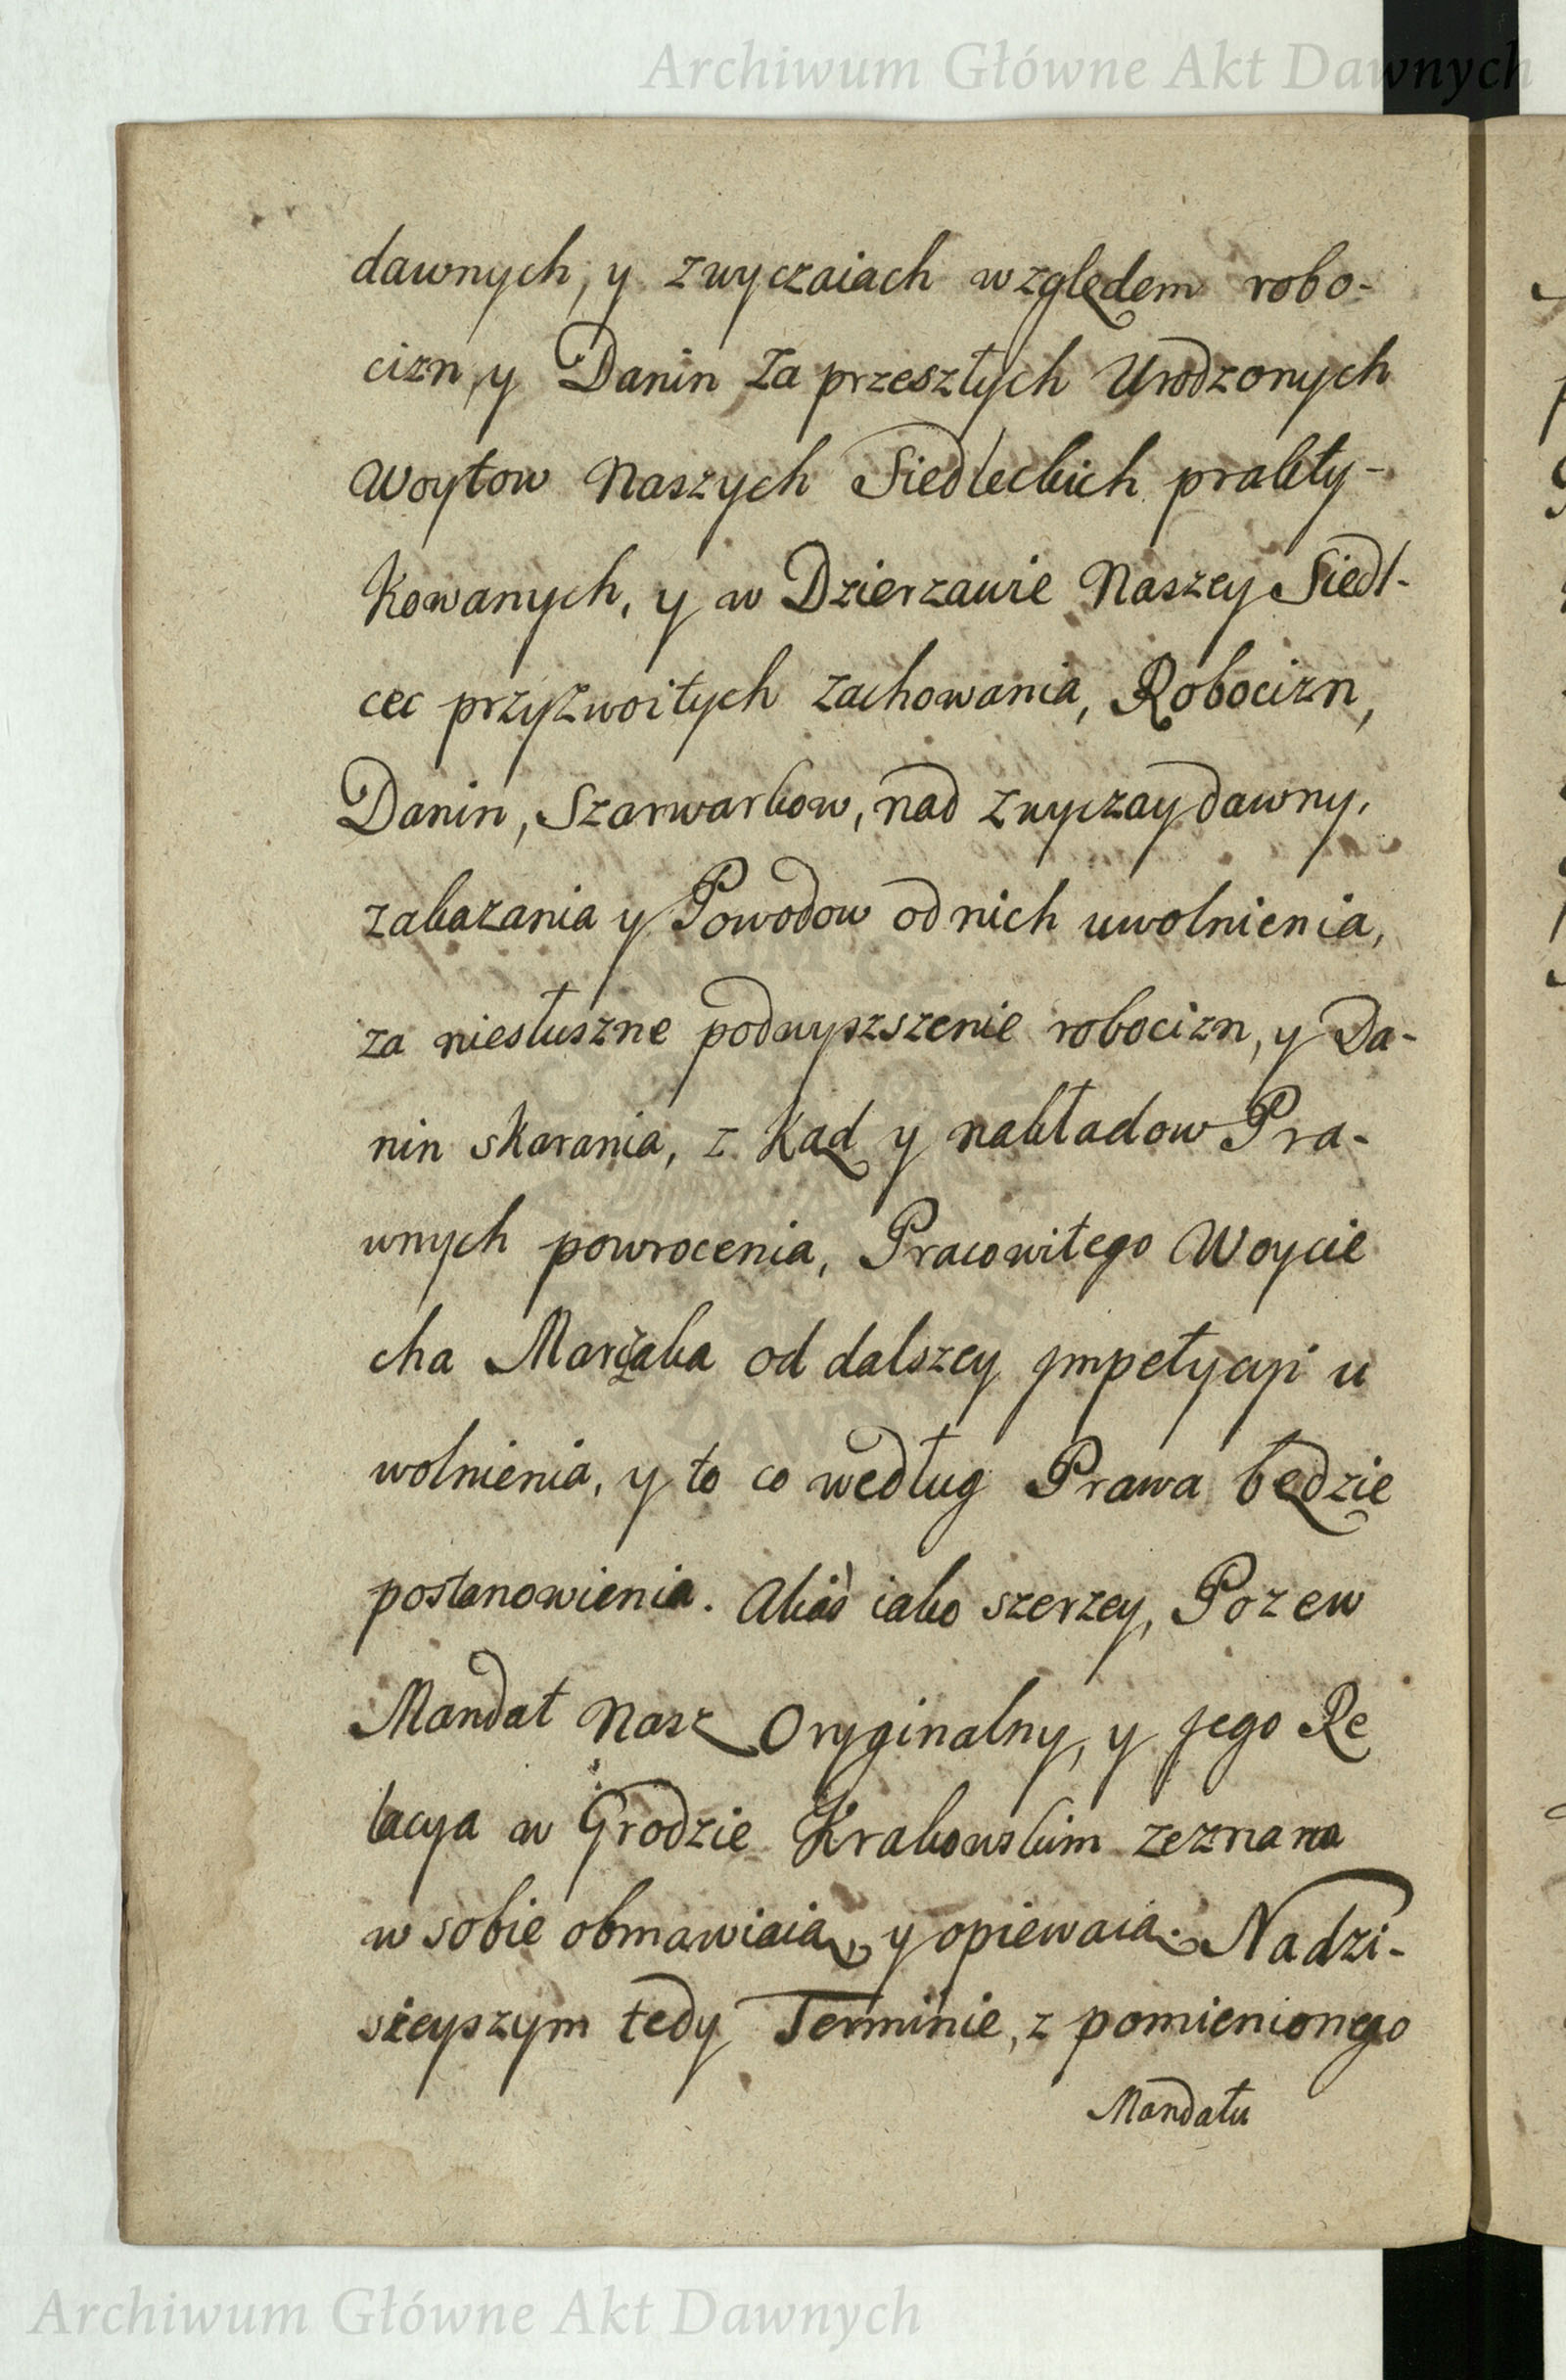 Archiwum Główne Akt Dawnych
dawnych, y zwyczaiach względem robo-
cizn, y Danin za przeszłych Urodzonych
Woytow Naszych Siedleckich prakty-
kowanych, y w Dzierzawie Naszey Siedl-
cec przyzwoitych zachowania, Robocizn,
Danin, Szarwarkow, nad zwyczay dawny,
zakazania y Powodow od nich uwolnienia,
za niesłuszne podwyszszenie robocizn, y Da-
nin skarania, z kąd y nakładow Pra-
wnych powrocenia, Pracowitego Woycie
cha od dalszey jmpetycyi u
wolnienia, y to co według Prawa będzie
postanowienia. Aliàs iako szerzey, Pozew
Mandat Nasz Oryginalny, y jego Re
lacya w Grodzie Krakowskim zeznana
w sobie obmawiaią, y opiewaią. Na dzi-
sieyszym tedy Terminie, z pomienionego
Mandatu
Archiwum Główne Akt Dawnych